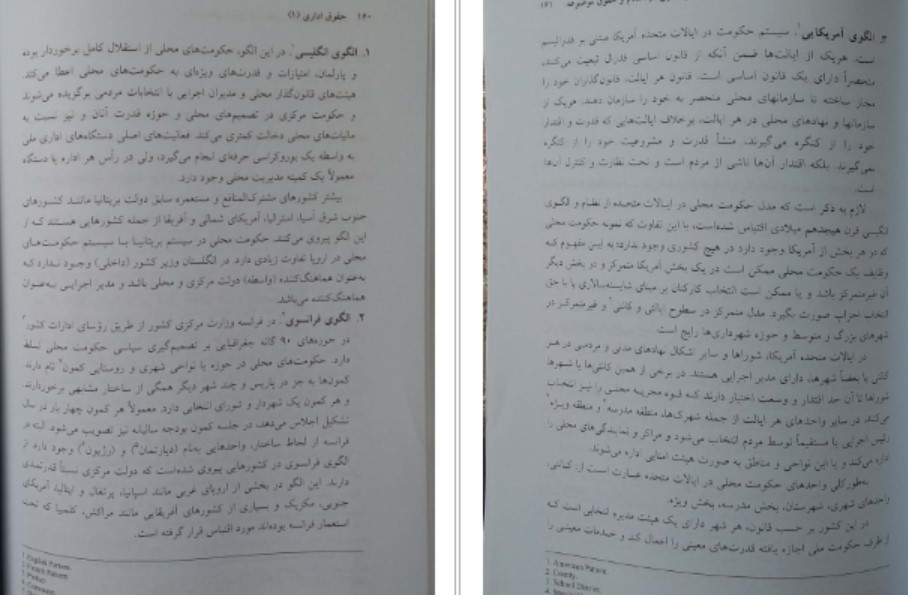 ۱۶۰ حقوق اداری (۱)
۱. الگوی انگلیسی۱. در این الگو، حکومت‌های محلی از استقلال کامل برخوردار بوده
و پارلمان، امتیازات و قدرت‌های ویژه‌ای به حکومت‌های محلی اعطا می‌کند.
هیئت‌های قانون‌گذار محلی و مدیران اجرایی با انتخابات مردمی برگزیده می‌شوند
و حکومت مرکزی در تصمیم‌های محلی و حوزه قدرت آنان و نیز نسبت به
مالیات‌های محلی دخالت کمتری می‌کند. فعالیت‌های اصلی دستگاه‌های اداری ملی
به واسطه یک بوروکراسی حرفه‌ای انجام می‌گیرد، ولی در رأس هر اداره یا دستگاه
معمولاً یک کمیته مدیریت محلی وجود دارد.
بیشتر کشورهای مشترک‌المنافع و مستعمره سابق دولت بریتانیا مانند کشورهای
جنوب شرق آسیا، استرالیا، آمریکای شمالی و آفریقا از جمله کشورهایی هستند که از
این الگو پیروی می‌کنند. حکومت محلی در سیستم بریتانیا با سیستم حکومت‌های
محلی در اروپا تفاوت زیادی دارد. در انگلستان وزیر کشور (داخلی) وجود ندارد که
به‌عنوان هماهنگ‌کننده (واسطه) دولت مرکزی و محلی باشد و مدیر اجرایی به‌عنوان
هماهنگ‌کننده می‌باشد.
۲. الگوی فرانسوی۲. در فرانسه وزارت مرکزی کشور از طریق رؤسای ادارات کشور۳
در حوزه‌های ۹۰ گانه جغرافیایی بر تصمیم‌گیری سیاسی حکومت محلی تسلط
دارد. حکومت‌های محلی در حوزه یا نواحی شهری و روستایی کمون۴ نام دارند.
کمون‌ها به جز در پاریس و چند شهر دیگر همگی از ساختار مشابهی برخوردارند.
و هر کمون یک شهردار و شورای انتخابی دارد. معمولاً هر کمون چهار بار در سال
تشکیل اجلاس می‌دهد، در جلسه کمون بودجه سالیانه نیز تصویب می‌شود. البته در
فرانسه از لحاظ ساختار، واحدهایی به‌نام (دپارتمان) و (رژیون) وجود دارد. از
الگوی فرانسوی در کشورهایی پیروی شده‌است که دولت مرکزی نسبتاً قدرتمندی
دارند. این الگو در بخشی از اروپای غربی مانند اسپانیا، پرتغال و ایتالیا، آمریکای
جنوبی، مکزیک و بسیاری از کشورهای آفریقایی مانند مراکش، کلمبیا که تحت
استعمار فرانسه بوده‌اند مورد اقتباس قرار گرفته است.
1. English Pattern.
2. French Pattern.
3. Prefect
4. Commune
و حقوق موضوعه ۱۶۱
الگوی آمریکایی۱. سیستم حکومت در ایالات متحده آمریکا مبتنی بر فدرالیسم
است. هریک از ایالت‌ها ضمن آنکه از قانون اساسی فدرال تبعیت می‌کند،
منحصراً دارای یک قانون اساسی است. قانون هر ایالت، قانون‌گذاران خود را
مجاز ساخته تا سازمانهای محلی منحصر به خود را سازمان دهند. هریک از
سازمانها و نهادهای محلی در هر ایالت، برخلاف ایالت‌هایی که قدرت و اقتدار
خود را از کنگره می‌گیرند، منشأ قدرت و مشروعیت خود را از کنگره
نمی‌گیرند. بلکه اقتدار آن‌ها ناشی از مردم است و تحت نظارت و کنترل آن‌ها
است.
لازم به ذکر است که مدل حکومت محلی در ایالات متحده از نظام و الگوی
انگلیسی قرن هیجدهم میلادی اقتباس شده‌است، با این تفاوت که نمونه حکومت محلی
که در هر بخش از آمریکا وجود دارد در هیچ کشوری وجود ندارد؛ به این مفهوم که
وظایف یک حکومت محلی ممکن است در یک بخش آمریکا متمرکز و در بخش دیگر
آن غیرمتمرکز باشد و یا ممکن است انتخاب کارکنان بر مبنای شایسته‌سالاری یا با حق
انتخاب احزاب صورت بگیرد. مدل متمرکز در سطوح ایالتی و کانتی۲ و غیرمتمرکز در
شهرهای بزرگ و متوسط و حوزه شهرداری‌ها رایج است.
در ایالات متحده آمریکا، شوراها و سایر اشکال نهادهای مدنی و مردمی در هر
کانتی یا بعضاً شهرها، دارای مدیر اجرایی هستند. در برخی از همین کانتی‌ها یا شهرها
شوراها تا آن حد اقتدار و وسعت اختیار دارند که قوه مجریه محلی را نیز انتخاب
می‌کنند. در سایر واحدهای هر ایالت از جمله شهرک‌ها، منطقه مدرسه و منطقه ویژه
رئیس اجرایی با مستقیماً توسط مردم انتخاب می‌شود و مراکز و نمایندگی‌های محلی را
اداره می‌کند و یا این نواحی و مناطق به صورت هیئت امنایی اداره می‌شوند.
به‌طورکلی واحدهای حکومت محلی در ایالات متحده عبارت است از: کانتی،
واحدهای شهری، شهرستان، بخش مدرسه، بخش ویژه.
در این کشور بر حسب قانون، هر شهر دارای یک هیئت مدیره انتخابی است که
از طرف حکومت ملی اجازه یافته قدرت‌های معینی را اعمال کند و خدمات معینی را
1. American Pattern.
2. County.
3. School District.